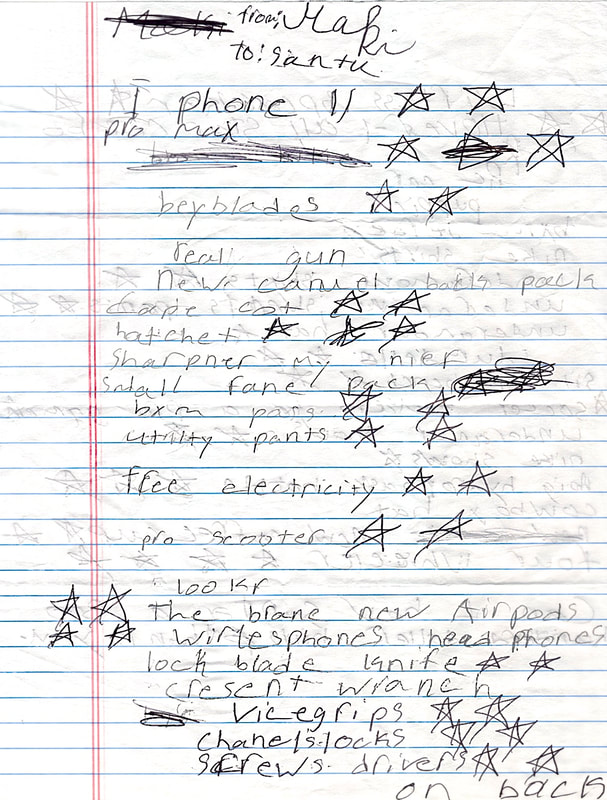 from: Maki
to: Santu
I phone 11
pro max
beyblades
reall gun
New camel bak pack
cape cot
hatchet
Sharpner my nief
Small fane pack
bxm pans
utility pants
free electricity
pro scooter
lookr
The brane new Airpods
wirlesphones head phones
lock blade knife
cresent wranch
Vicegrips
chanelslocks
screws drivers
on back